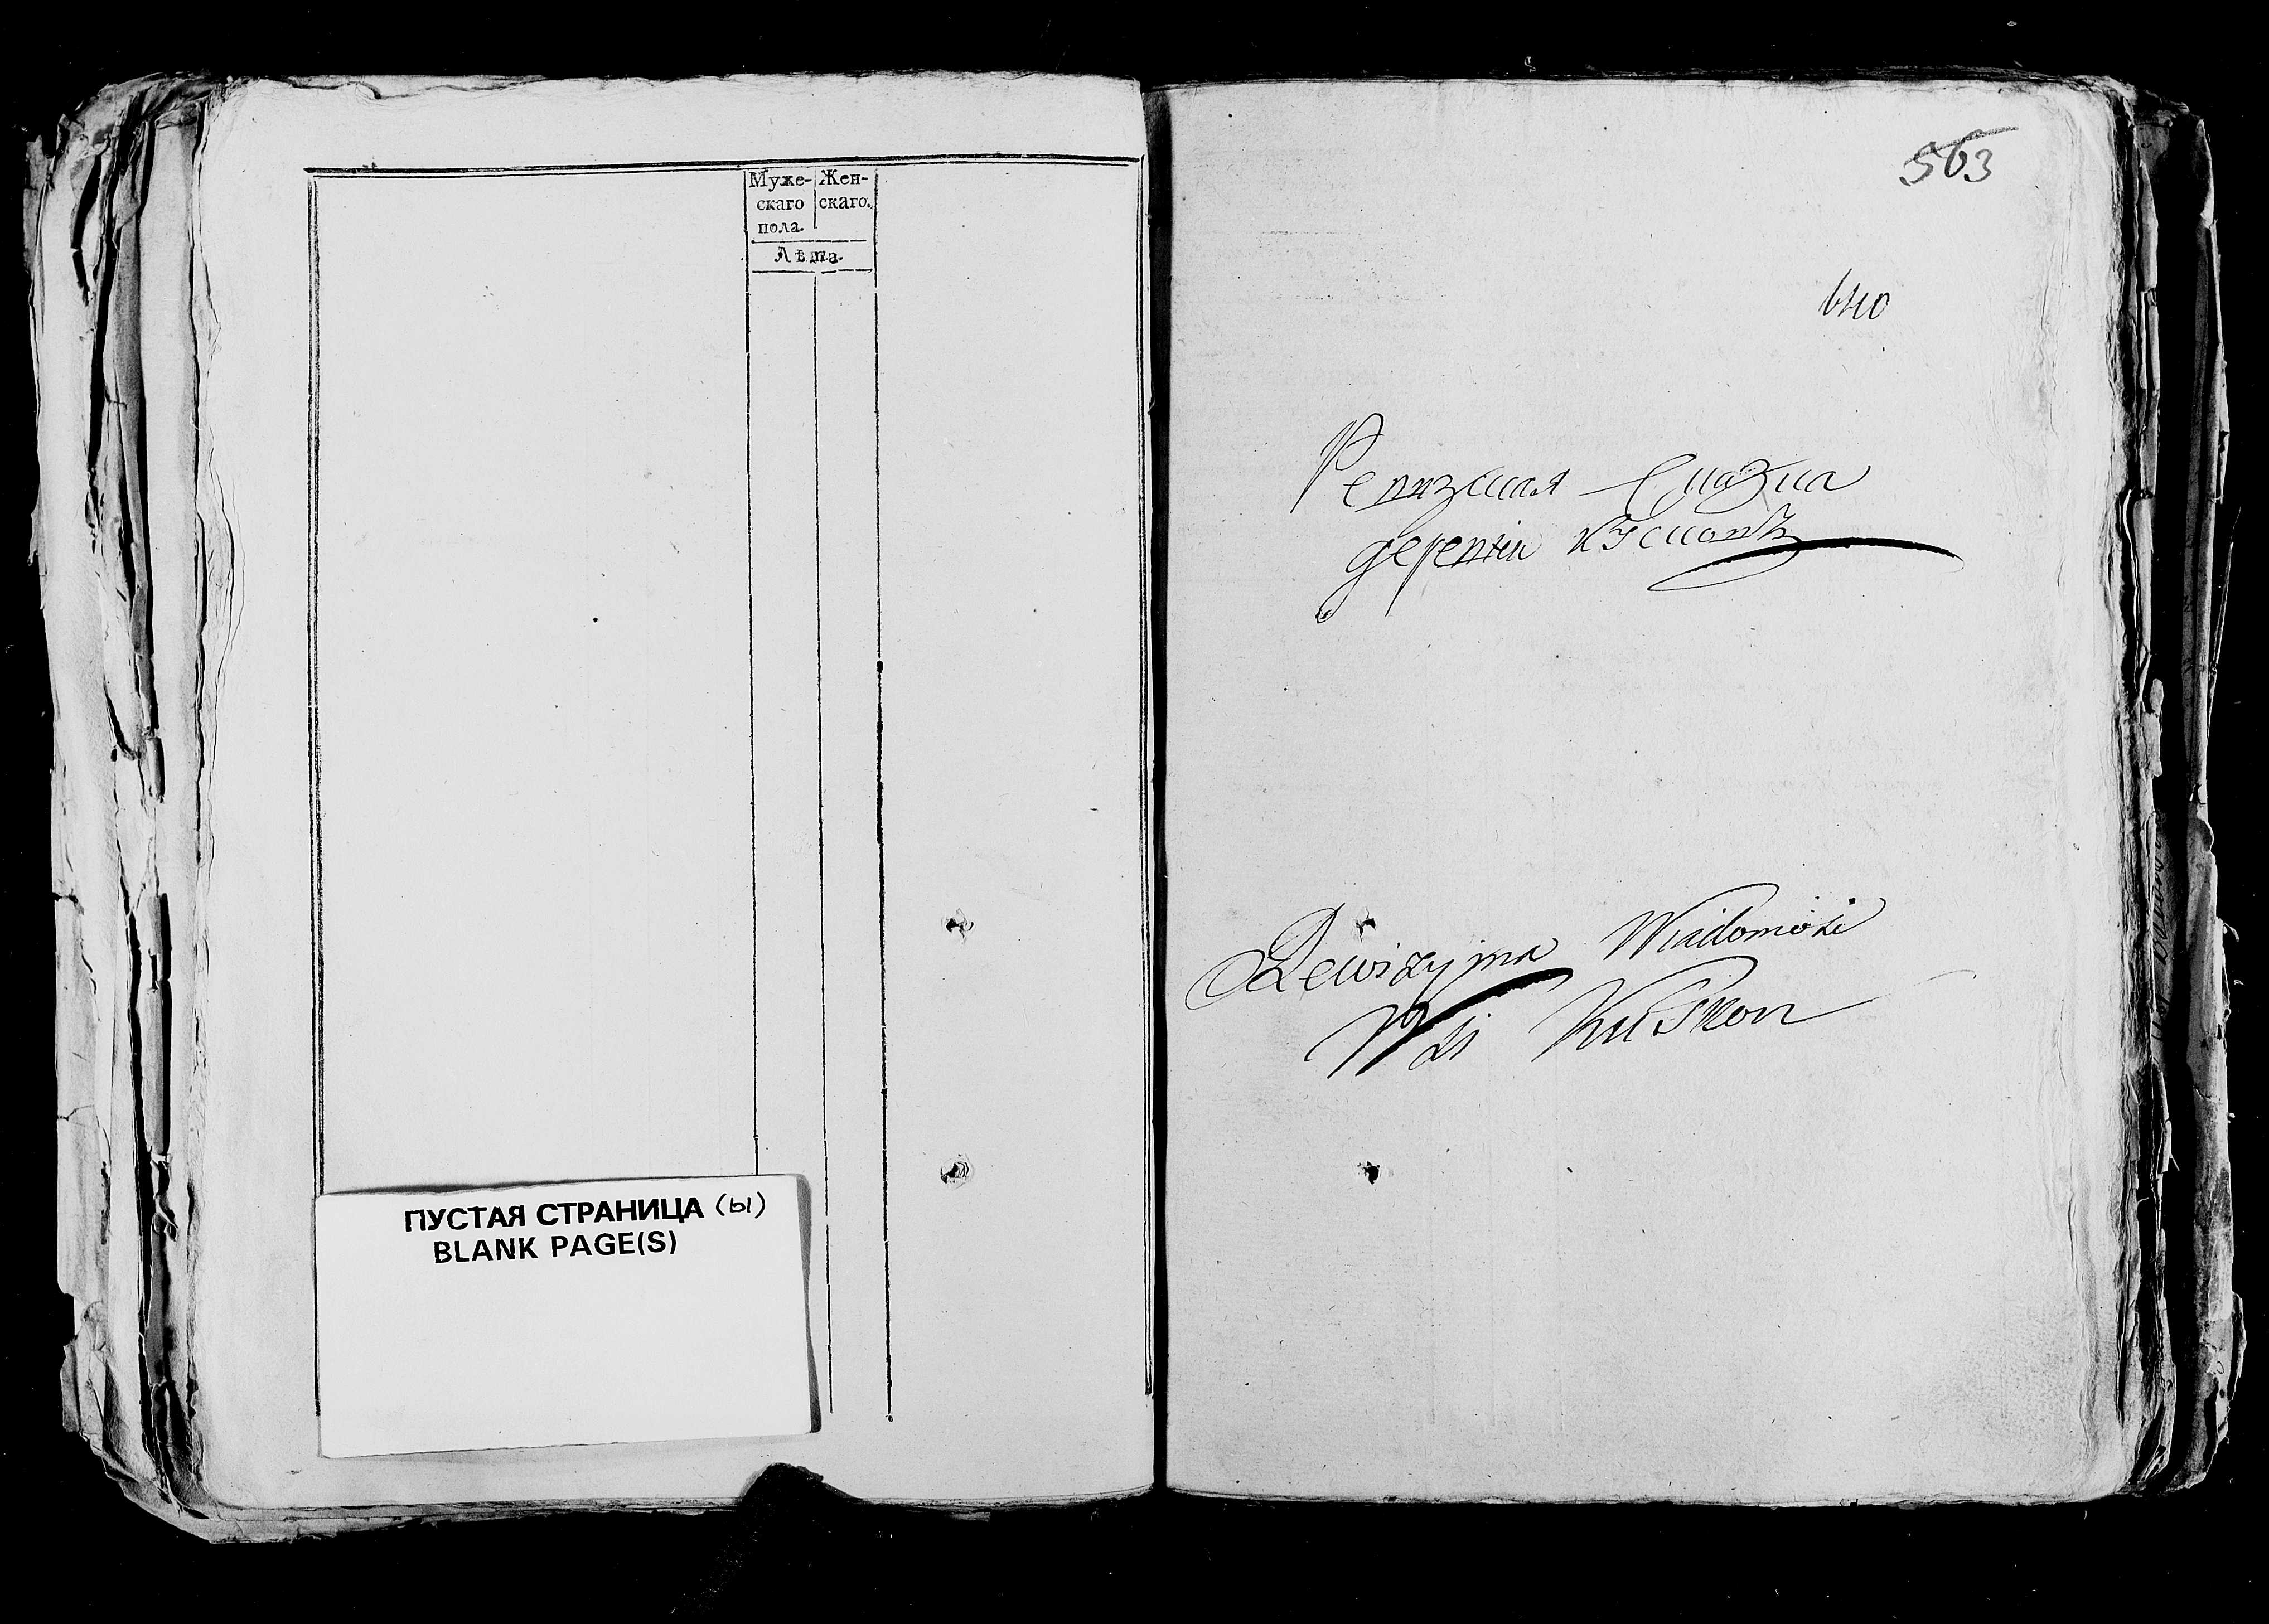 Муже-
скаго
пола.
Жен-
скаго.
Лѣта.
ПУСТАЯ СТРАНИЦА (ы)
BLANK PAGE(S)
563
610
Ревизская Сказка
деревни Кусковъ
Rewizyjna Wiadomość
Wsi Kuskow